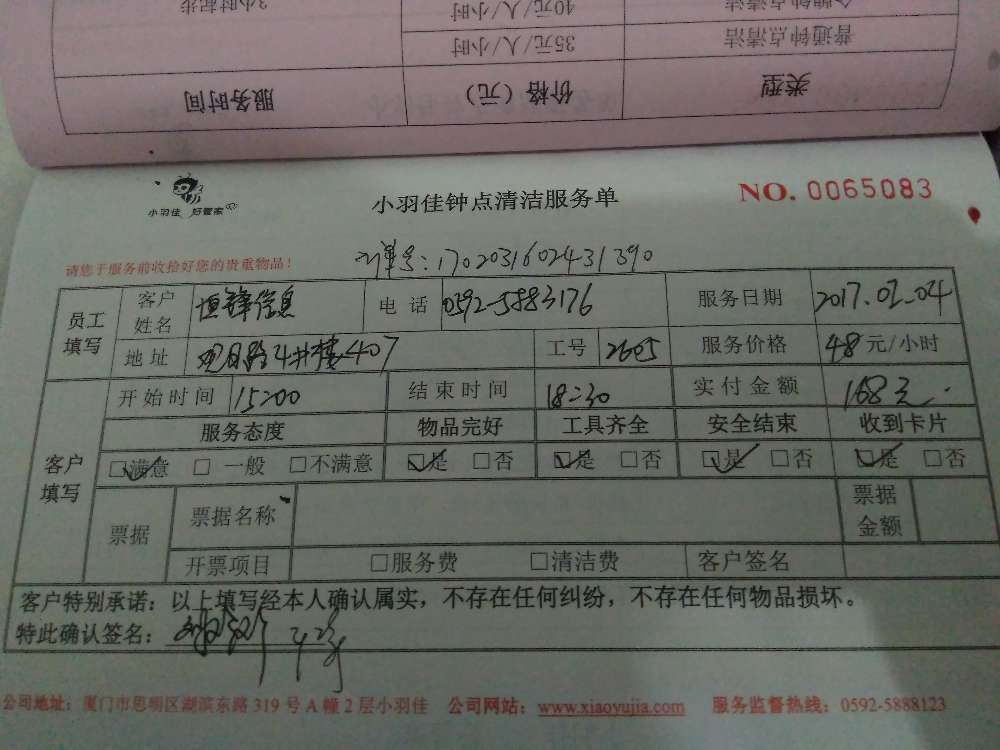 3小时起步
40元/人/小时
普通钟点清洁 35元/人/小时
类型 价格（元） 服务时间
小羽佳 好管家
小羽佳钟点清洁服务单
NO. 0065083
请您于服务前收拾好您的贵重物品！
订单号：1702031602431390
员工填写 客户姓名 恒锋信息 电话 0592-5883176 服务日期 2017.02.04
地址 观日路4井楼407 工号 2605 服务价格 48元/小时
客户填写 开始时间 15:00 结束时间 18:30 实付金额 168元.
服务态度 物品完好 工具齐全 安全结束 收到卡片
☑满意 □一般 □不满意 ☑是 □否 ☑是 □否 ☑是 □否 ☑是 □否
票据 票据名称 票据金额
开票项目 □服务费 □清洁费 客户签名
客户特别承诺：以上填写经本人确认属实，不存在任何纠纷，不存在任何物品损坏。
特此确认签名：
公司地址：厦门市思明区湖滨东路319号A幢2层小羽佳 公司网站：www.xiaoyujia.com 服务监督热线：0592-5888123